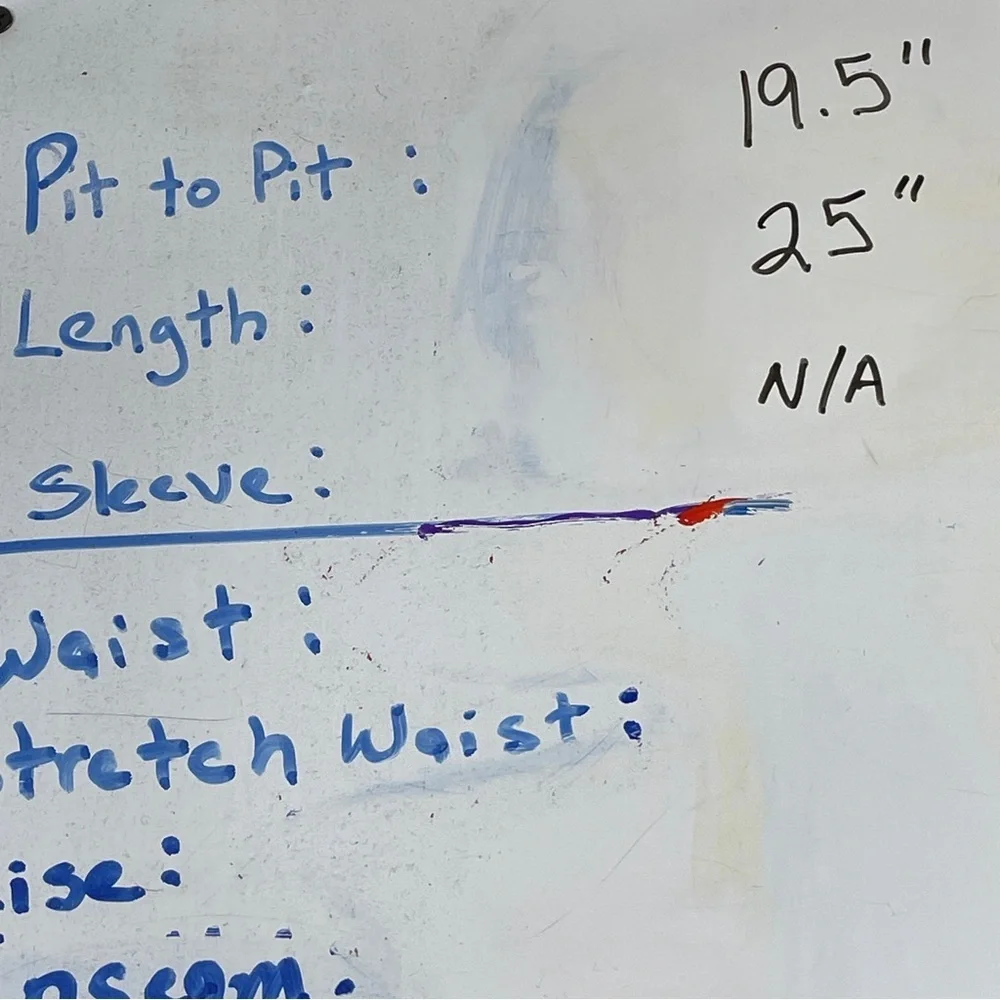 Pit to Pit : 19.5"
Length : 25"
Sleeve : N/A
Waist :
tretch Waist :
ise :
nseam :